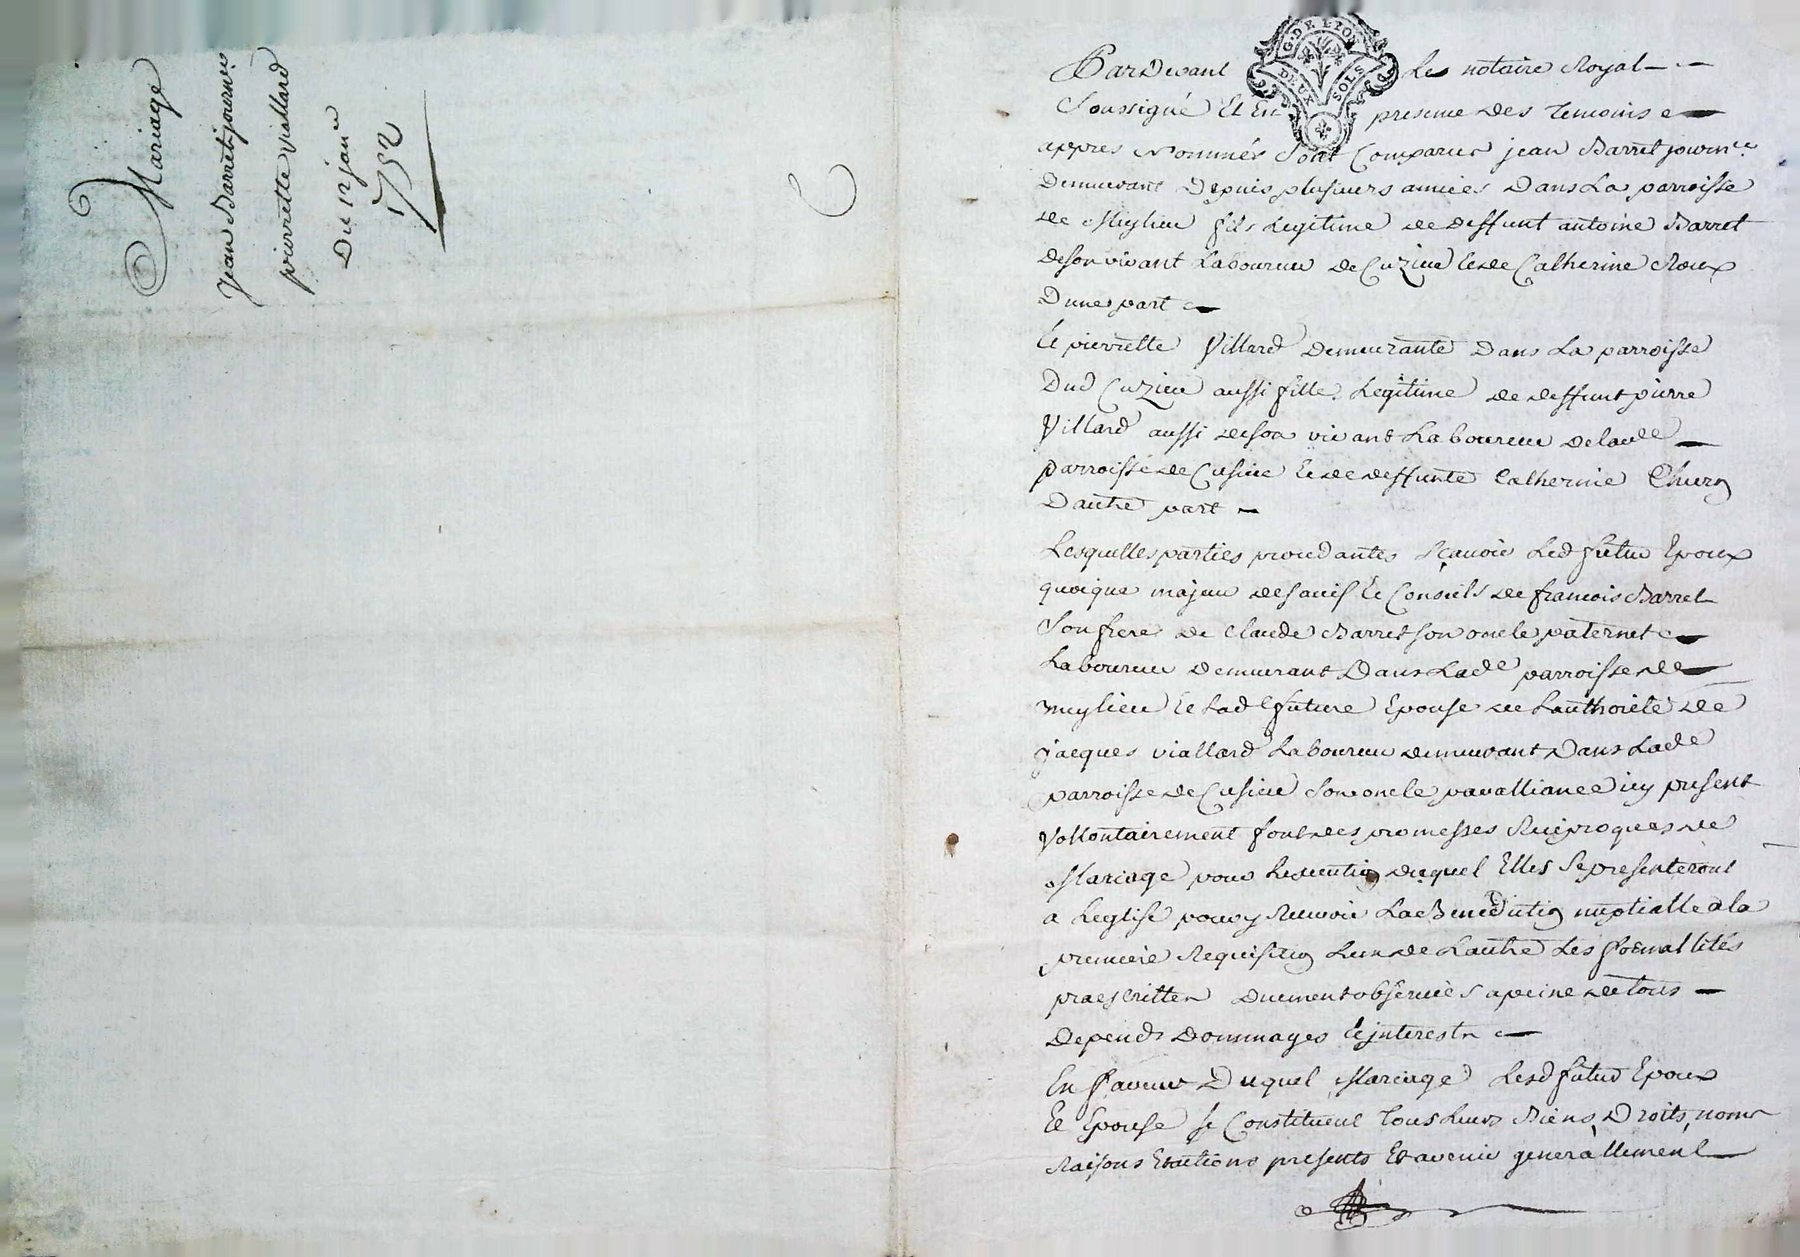 Mariage
Jean Barret journer
pierrette viallard
Du 12 janer
1752
G. DE LYON
DEUX SOLS
Pardevant Le notaire Royal
Soussigné Et En presence des temoins
appres Nommés Sont Comparus jean Barret journer
Demeurant Depuis plusieurs années Dans La parroisse
de Meylieu fils Legitime de deffunt antoine Barret
de son vivant Laboureur de Cuzieu Et de Catherine Roux
Dune part
Et pierrette Villard Demeurante Dans La parroisse
Dud Cuzieu aussi fille Legitime de deffunt pierre
Villard aussi de son vivant Laboureur de lade
parroisse de Cusieu Et de deffunte Catherine
Dautre part
Lesquelles parties procedantes Sçavoir Led futur Epoux
quoique majeur de lavis Et Conseils de francois Barret
Son frere de Claude Barret son oncle paternel
Laboureur Demeurant Dans Lade parroisse de
meylieu Et Lade future Epouse de Lauthorité de
jacques viallard Laboureur demeurant Dans Lade
parroisse de Cusieu Son oncle par alliance icy present
Vollontairement font des promesses Reciproques de
Mariage pour Lexecution duquel Elles Se presenteront
a Leglise pour y Recevoir La Benediction nuptialle a la
premiere Requisition Lun de Lautre Les formallités
praescrittes Duement observées a peine de tous
Depends Dommages Et interests
En faveur Duquel Mariage Lesd futur Epoux
Et Epouse se Constituent tous Leurs Biens, Droits, noms
Raisons Et actions presents Et avenir generallement